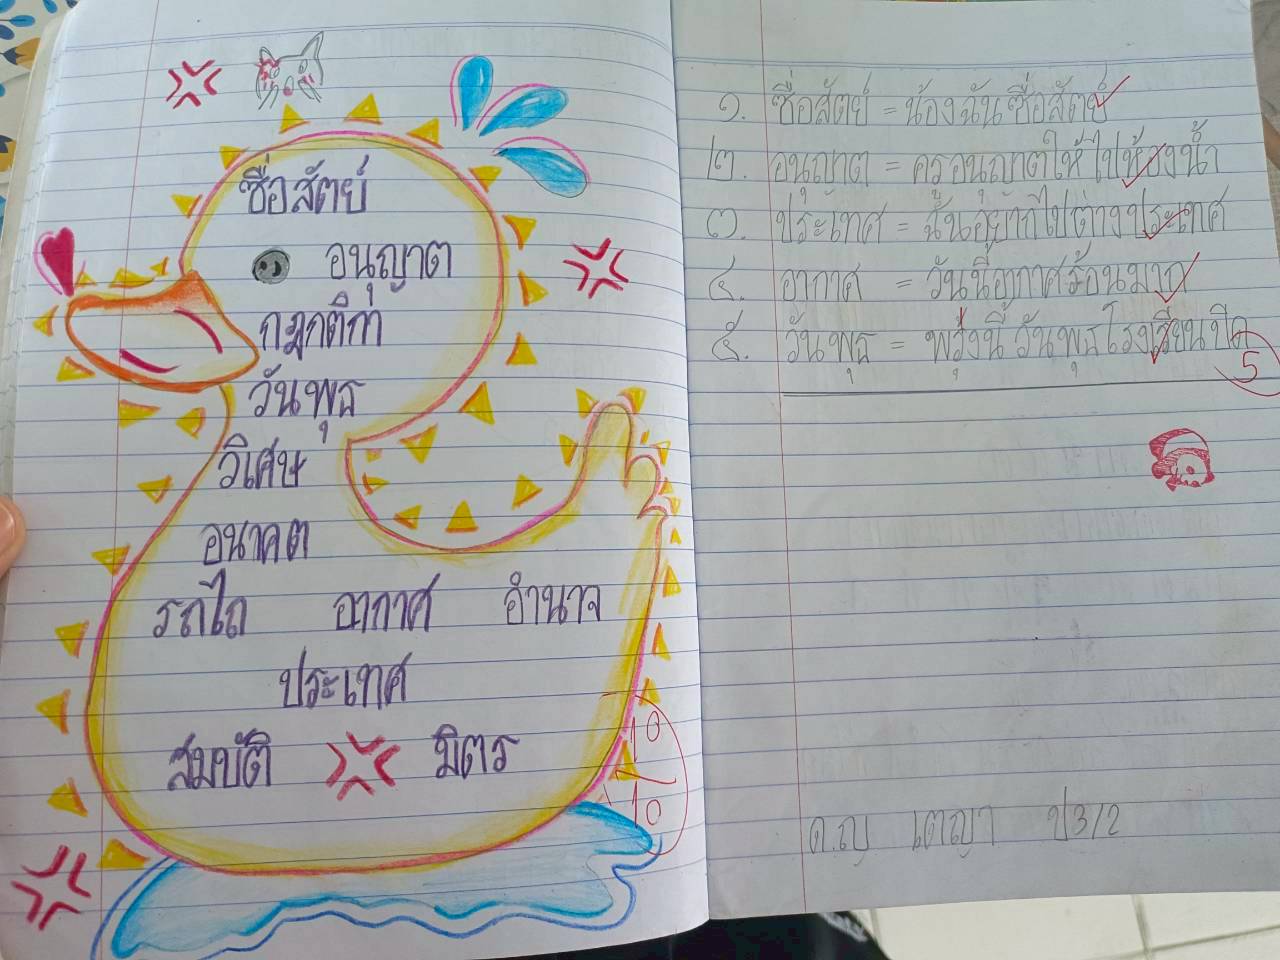 ซื่อสัตย์
อนุญาต
กฎกติกา
วันพุธ
วิเศษ
อนาคต
รถไถ อากาศ อำนาจ
ประเทศ
สมบัติ มิตร
10
10
๑. ซื่อสัตย์ = น้องฉันซื่อสัตย์
๒. อนุญาต = ครูอนุญาตให้ไปห้องน้ำ
๓. ประเทศ = ฉันอยากไปต่างประเทศ
๔. อากาศ = วันนี้อากาศร้อนมาก
๕. วันพุธ = พรุ่งนี้วันพุธโรงเรียนปิด
5
ด.ญ เตญา ป3/2